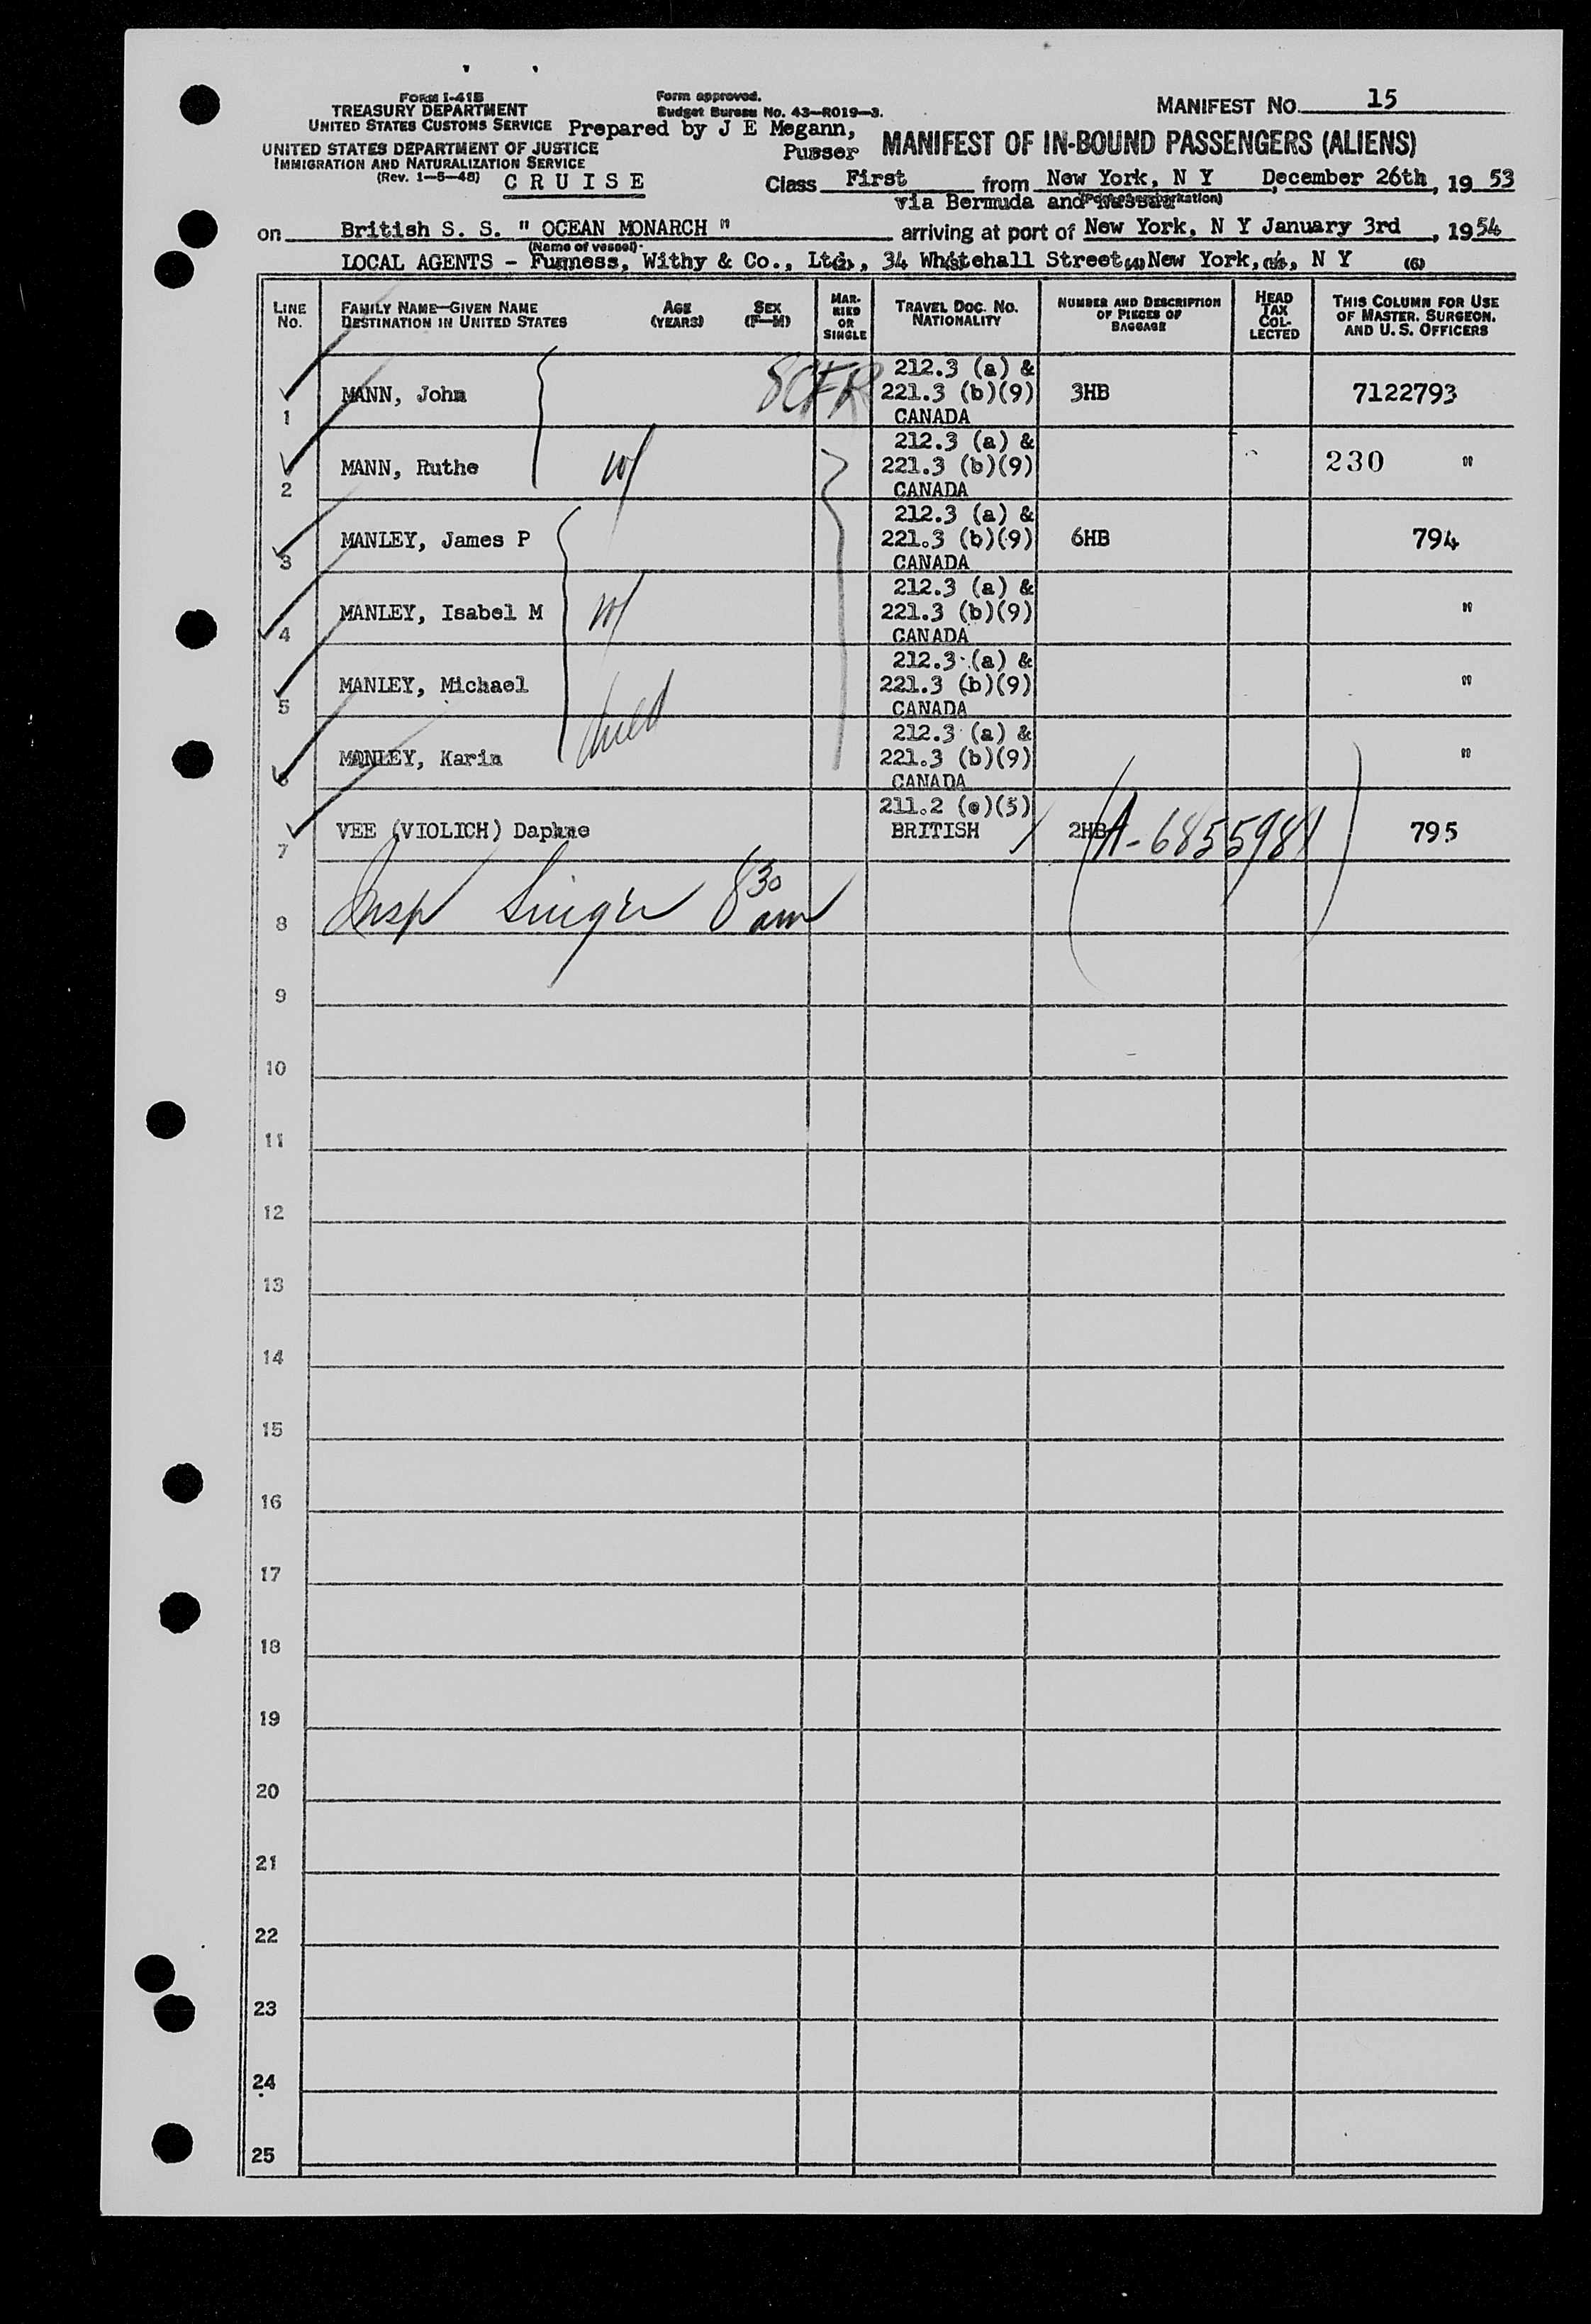 Form I-41B
TREASURY DEPARTMENT
UNITED STATES CUSTOMS SERVICE
UNITED STATES DEPARTMENT OF JUSTICE
IMMIGRATION AND NATURALIZATION SERVICE
(Rev. 1-5-48) CRUISE
Form approved.
Budget Bureau No. 43-R019-3.
Prepared by J E Megann,
Purser
MANIFEST NO. 15
MANIFEST OF IN-BOUND PASSENGERS (ALIENS)
Class First from New York, N Y December 26th, 19 53
via Bermuda and Nassau
on British S. S. " OCEAN MONARCH " arriving at port of New York, N Y January 3rd, 1954
(Name of vessel)
LOCAL AGENTS - Furness, Withy & Co., Ltd., 34 Whitehall Street, New York, N Y (6)
LINE No. FAMILY NAME—GIVEN NAME DESTINATION IN UNITED STATES AGE (YEARS) SEX (F—M) MARRIED OR SINGLE TRAVEL DOC. NO. NATIONALITY NUMBER AND DESCRIPTION OF PIECES OF BAGGAGE HEAD TAX COLLECTED THIS COLUMN FOR USE OF MASTER, SURGEON, AND U. S. OFFICERS
8CFR 212.3 (a) &
1 MANN, John 221.3 (b)(9) 3HB 7122793
CANADA
212.3 (a) &
2 MANN, Ruthe W 221.3 (b)(9) 230 "
CANADA
212.3 (a) &
3 MANLEY, James P 221.3 (b)(9) 6HB 794
CANADA
212.3 (a) &
4 MANLEY, Isabel M W 221.3 (b)(9) "
CANADA
212.3 (a) &
5 MANLEY, Michael 221.3 (b)(9) "
CANADA
child 212.3 (a) &
6 MANLEY, Karin 221.3 (b)(9) "
CANADA
211.2 (e)(5)
7 VEE (VIOLICH) Daphne BRITISH 2HB (A-6855981) 795
8 Insp Singer 8 30 am
9
10
11
12
13
14
15
16
17
18
19
20
21
22
23
24
25